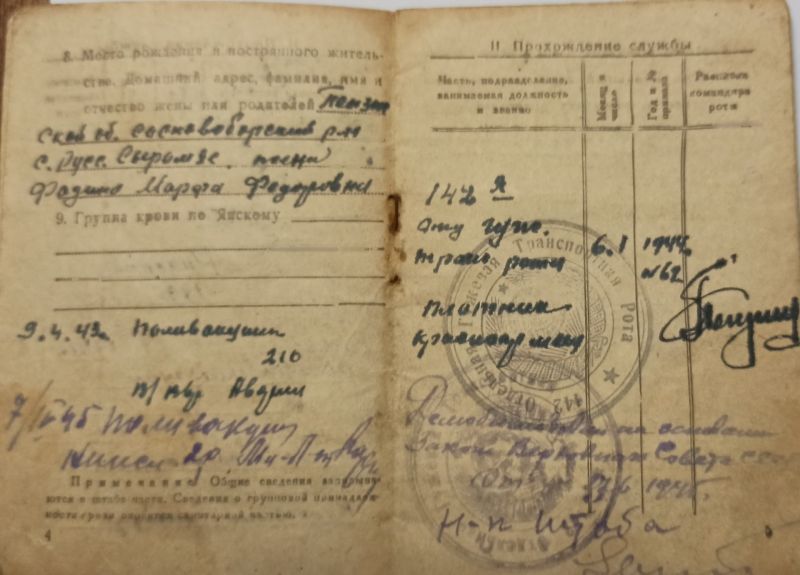 8. Место рождения и постоянного житель-
ства. Домашний адрес, фамилия, имя и
отчество жены или родителей Пензен
ской об. Сосновоборский р-н
с. Русс. Сыромяс
Фадина Марфа Федоровна
9. Группа крови по Янскому
9.4.43г. Поливакцин
210
7/IV 45 Поливакцин
Примечание Общие сведения заполня-
ются в штабе части. Сведения о групповой принадлеж-
ности крови вносятся санитарной частью.
4
II Прохождение службы
Часть, подразделение,
занимаемая должность
и звание
Месяц и
число
Год и №
приказа
Расписка
командира
роты
142 я
рота
6.1 1944.
№62
Плотник
Красноармеец
142 Отдельная Гужевая Транспортная Рота
Демобилизован на основании
Закона Верховного Совета СССР
1945г.
Н-к Штаба